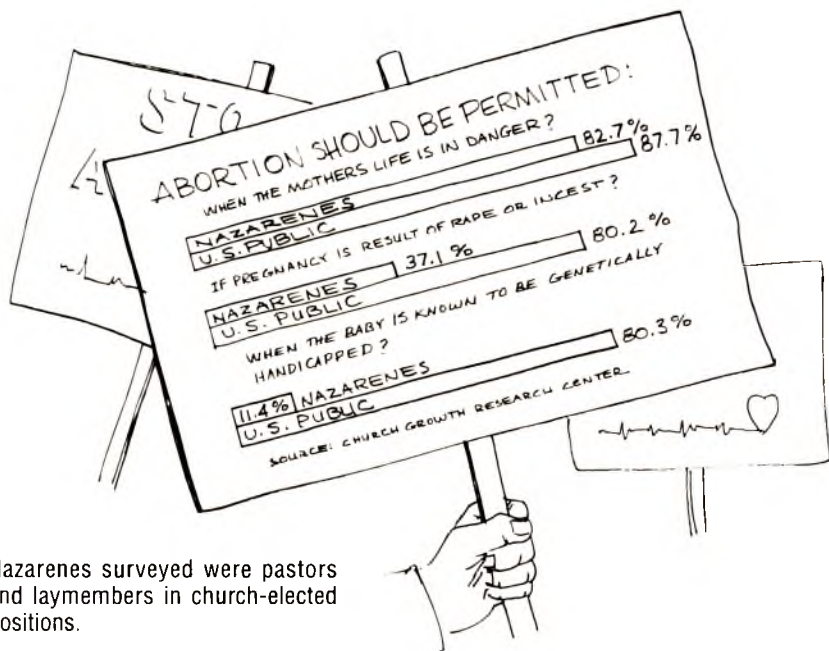 STO
ABORTION SHOULD BE PERMITTED:
WHEN THE MOTHERS LIFE IS IN DANGER?
82.7%
NAZARENES
87.7%
U.S. PUBLIC
IF PREGNANCY IS RESULT OF RAPE OR INCEST?
NAZARENES 37.1%
U.S. PUBLIC 80.2%
WHEN THE BABY IS KNOWN TO BE GENETICALLY
HANDICAPPED?
11.4% NAZARENES
U.S. PUBLIC 80.3%
SOURCE: CHURCH GROWTH RESEARCH CENTER
lazarenes surveyed were pastors
nd laymembers in church-elected
ositions.